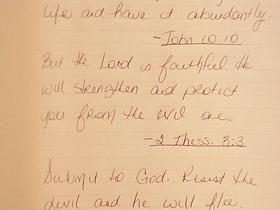 life and have it abundantly.
- John 10:10
But the Lord is faithful. He
will strengthen and protect
you from the evil one.
- 2 Thess. 3:3
Submit to God. Resist the
devil and he will flee